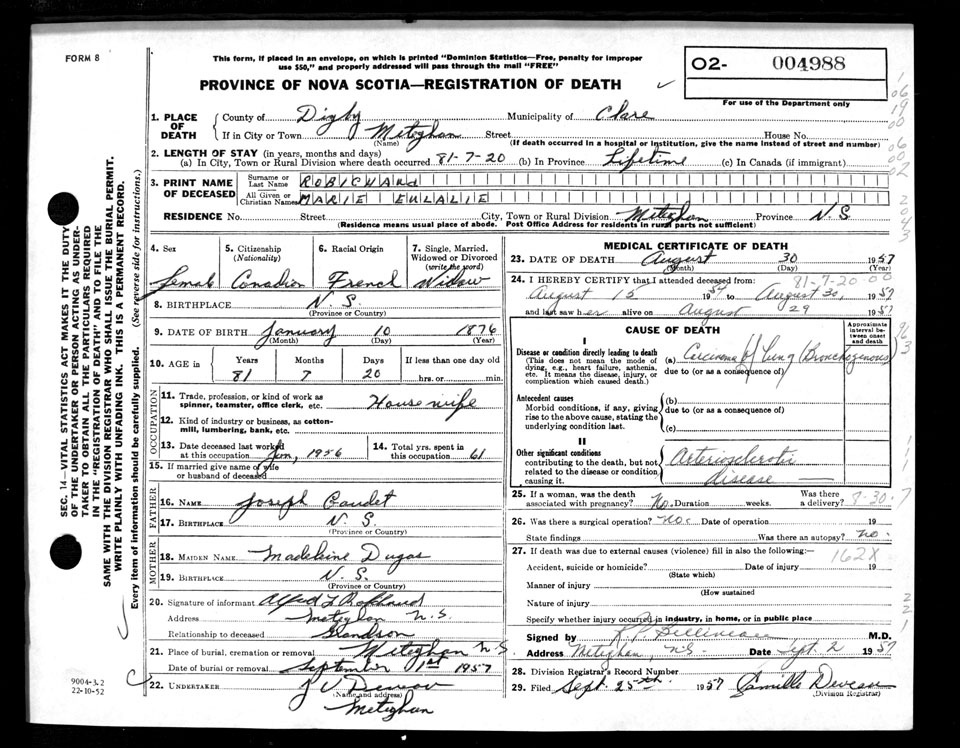 FORM 8
This form, if placed in an envelope, on which is printed "Dominion Statistics—Free, penalty for improper
use $50," and properly addressed will pass through the mail "FREE"
PROVINCE OF NOVA SCOTIA—REGISTRATION OF DEATH
O2- 004988
For use of the Department only
SEC. 14—VITAL STATISTICS ACT MAKES IT THE DUTY
OF THE UNDERTAKER OR PERSON ACTING AS UNDER-
TAKER TO OBTAIN ALL THE PARTICULARS REQUIRED
IN THE "REGISTRATION OF DEATH" AND TO FILE THE
SAME WITH THE DIVISION REGISTRAR WHO SHALL ISSUE THE BURIAL PERMIT.
WRITE PLAINLY WITH UNFADING INK. THIS IS A PERMANENT RECORD.
Every item of information should be carefully supplied. (See reverse side for instructions.)
1. PLACE OF DEATH
County of Digby Municipality of Clare
If in City or Town Meteghan Street House No.
(Name) (If death occurred in a hospital or institution, give the name instead of street and number)
2. LENGTH OF STAY (in years, months and days)
(a) In City, Town or Rural Division where death occurred 81-7-20 (b) In Province Lifetime (c) In Canada (if immigrant)
3. PRINT NAME OF DECEASED
Surname or Last Name ROBICHAUd
All Given or Christian Names MARIE EULALIE
RESIDENCE No. Street City, Town or Rural Division Meteghan Province N.S.
(Residence means usual place of abode. Post Office Address for residents in rural parts not sufficient)
4. Sex 5. Citizenship (Nationality) 6. Racial Origin 7. Single, Married, Widowed or Divorced (write the word)
Female Canadian French Widow
8. BIRTHPLACE N.S.
(Province or Country)
9. DATE OF BIRTH January 10 1876
(Month) (Day) (Year)
10. AGE in Years Months Days If less than one day old
81 7 20 hrs. or min.
OCCUPATION
11. Trade, profession, or kind of work as spinner, teamster, office clerk, etc. House wife
12. Kind of industry or business, as cotton-mill, lumbering, bank, etc.
13. Date deceased last worked at this occupation Jan, 1956 14. Total yrs. spent in this occupation 61
15. If married give name of wife or husband of deceased
FATHER
16. NAME Joseph Gaudet
17. BIRTHPLACE N.S.
(Province or Country)
MOTHER
18. MAIDEN NAME Madeleine Dugas
19. BIRTHPLACE N.S.
(Province or Country)
20. Signature of informant Alfred
Address Meteghan N.S.
Relationship to deceased Grandson
21. Place of burial, cremation or removal Meteghan N.S.
Date of burial or removal September 1st 1957
22. UNDERTAKER J V Deveau
(Name and address)
Meteghan
9004-3.2
22-10-52
MEDICAL CERTIFICATE OF DEATH
23. DATE OF DEATH August 30 1957
(Month) (Day) (Year)
24. I HEREBY CERTIFY that I attended deceased from: 81-7-20
August 15 1957 to August 30, 1957
and last saw her alive on August 29 1957
CAUSE OF DEATH
Approximate interval between onset and death
I
Disease or condition directly leading to death
(This does not mean the mode of dying, e.g., heart failure, asthenia, etc. It means the disease, injury, or complication which caused death.)
(a) Carcinoma of lung (Bronchogenous)
due to (or as a consequence of)
Antecedent causes
Morbid conditions, if any, giving rise to the above cause, stating the underlying condition last.
(b)
due to (or as a consequence of)
(c)
II
Other significant conditions
contributing to the death, but not related to the disease or condition causing it.
Arteriosclerotic
disease
25. If a woman, was the death associated with pregnancy? No. Duration weeks. Was there a delivery? 8-30-7
26. Was there a surgical operation? No. Date of operation 19
State findings Was there an autopsy? no.
27. If death was due to external causes (violence) fill in also the following:— 162X
Accident, suicide or homicide? Date of injury 19
(State which)
Manner of injury
(How sustained
Nature of injury
Specify whether injury occurred in industry, in home, or in public place
Signed by R P Belliveau M.D.
Address Meteghan, N.S. Date Sept. 2 1957
28. Division Registrar's Record Number
29. Filed Sept. 25th. 1957 Camille Deveau
(Division Registrar)